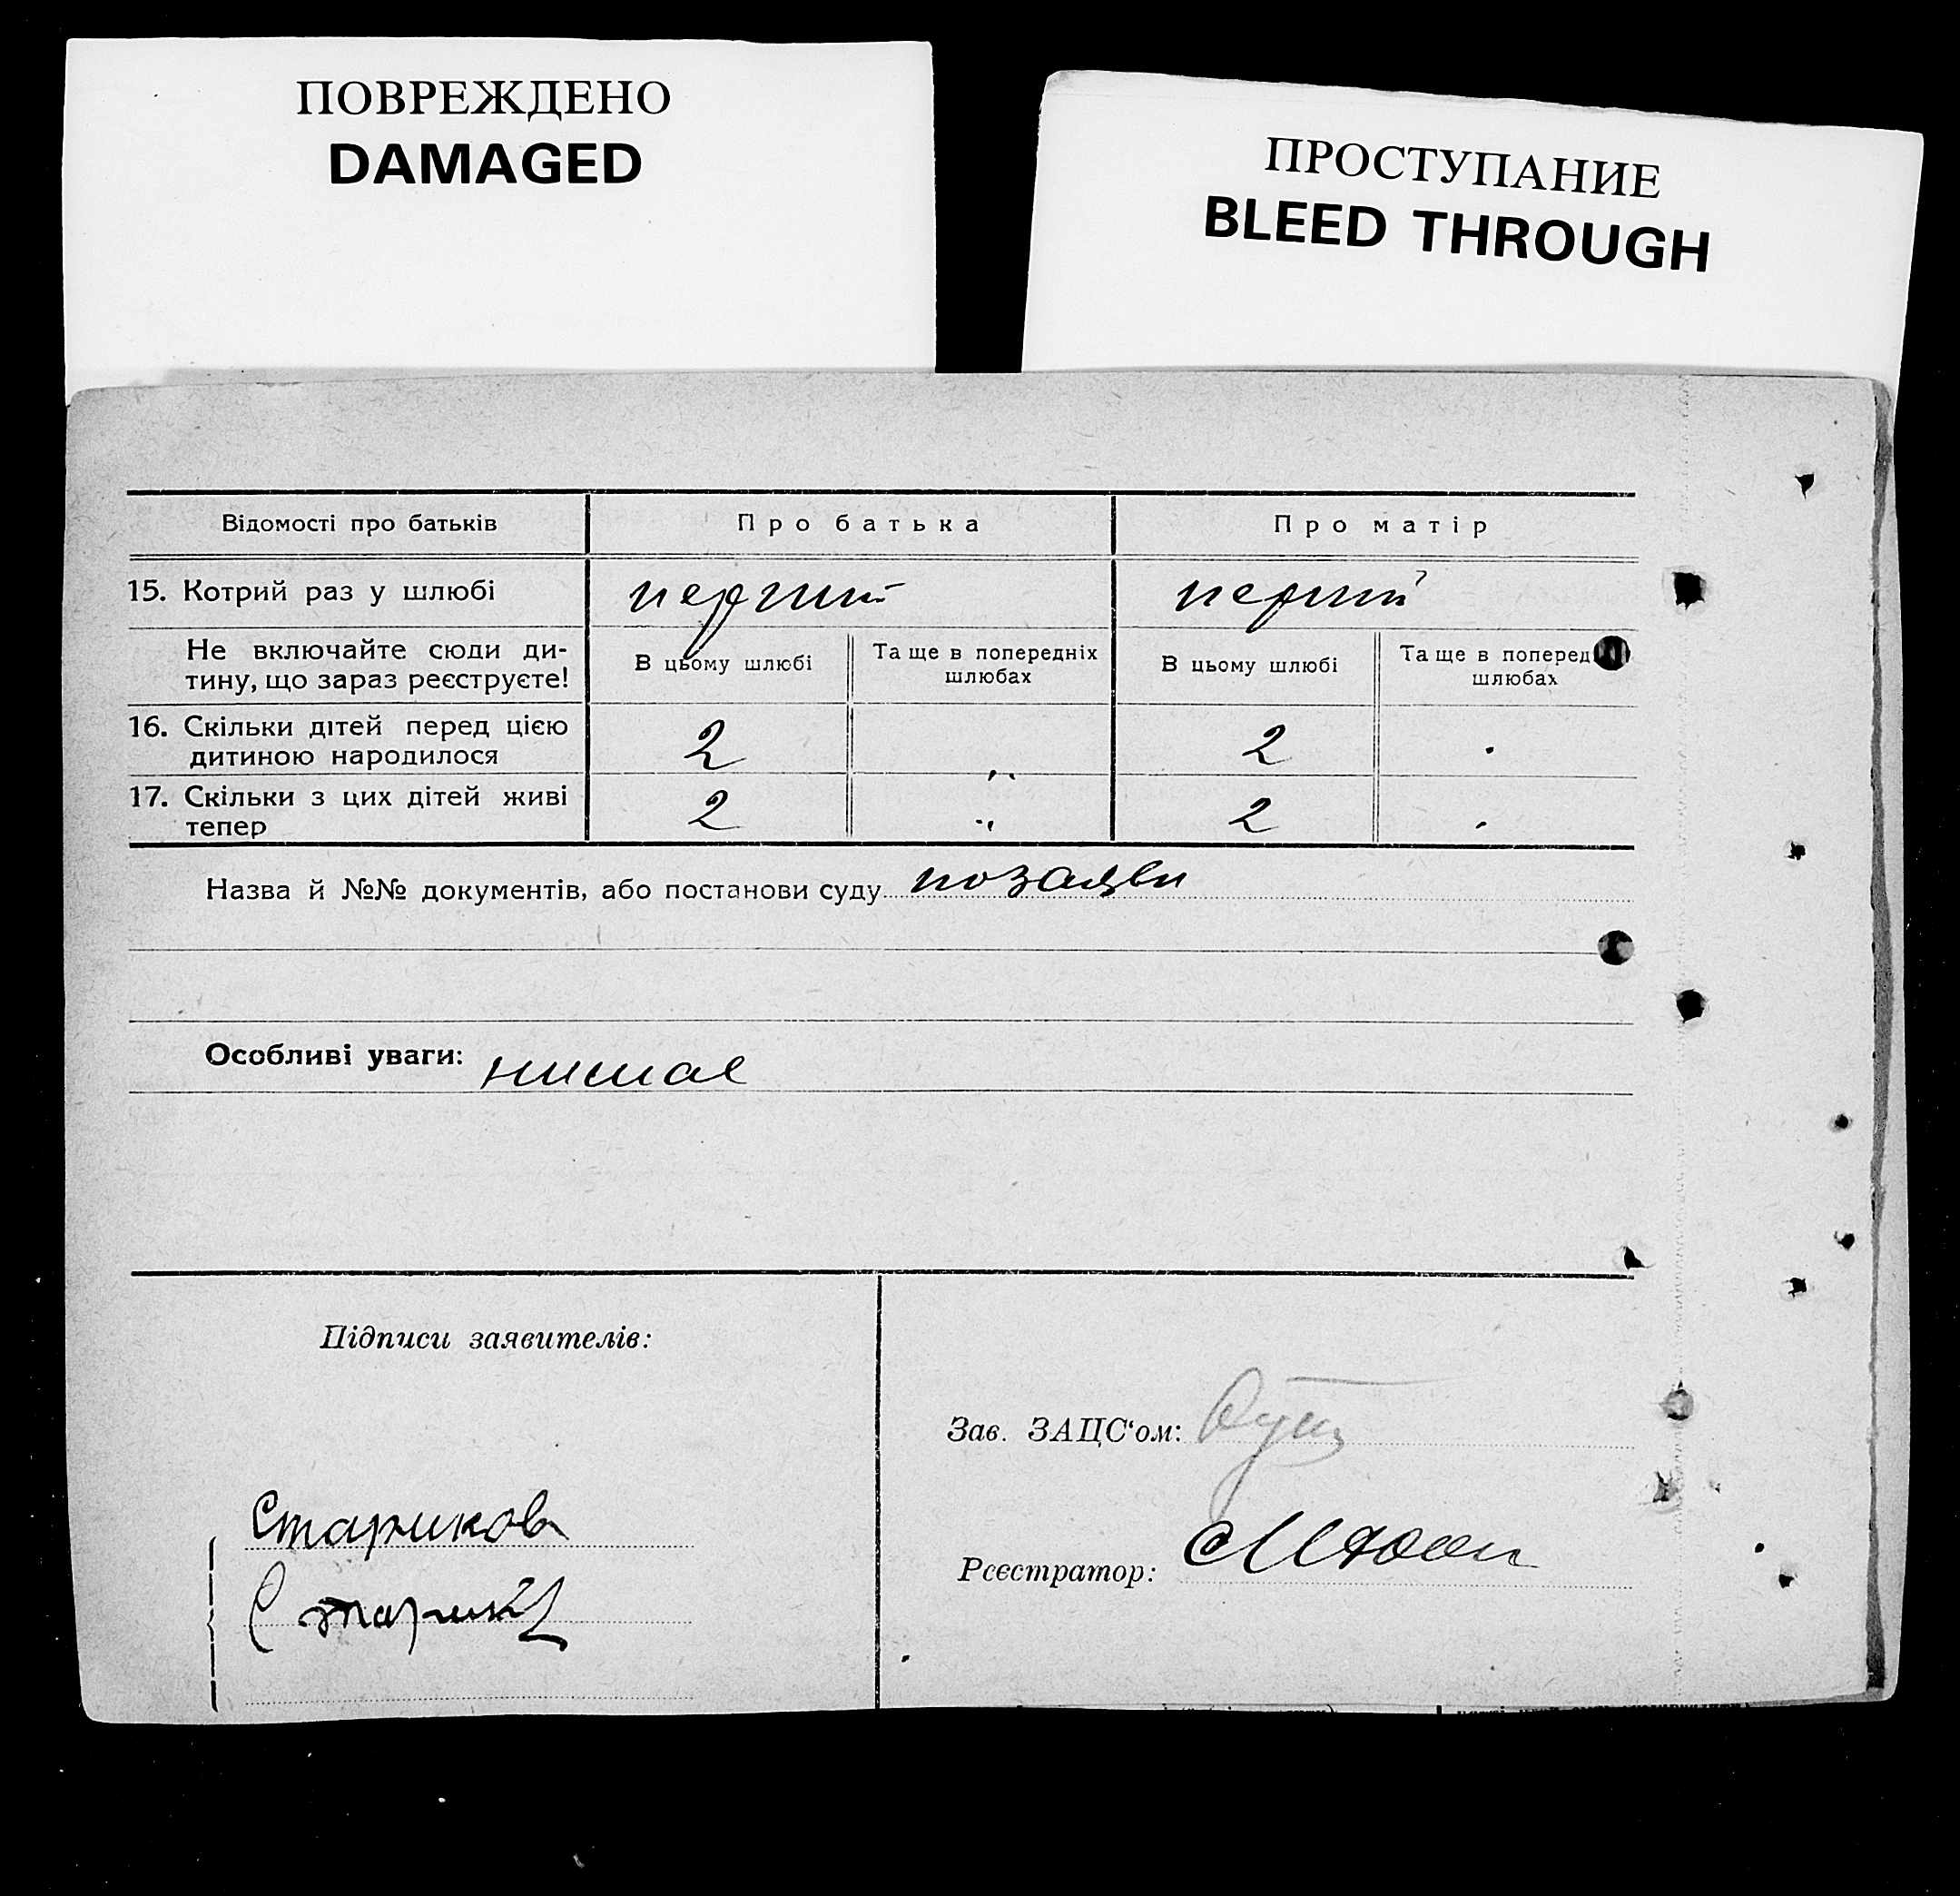 ПОВРЕЖДЕНО
DAMAGED
ПРОСТУПАНИЕ
BLEED THROUGH
Відомості про батьків
Про батька
Про матір
15. Котрий раз у шлюбі
перший
перший
Не включайте сюди ди-
тину, що зараз реєструєте!
В цьому шлюбі
Та ще в попередніх
шлюбах
В цьому шлюбі
Та ще в поперед
шлюбах
16. Скільки дітей перед цією
дитиною народилося
2
„
2
17. Скільки з цих дітей живі
тепер
2
„
2
Назва й №№ документів, або постанови суду по заяви
Особливі уваги: нимае
Підписи заявителів:
Зав. ЗАЦС‘ом:
Стариков
Реєстратор: